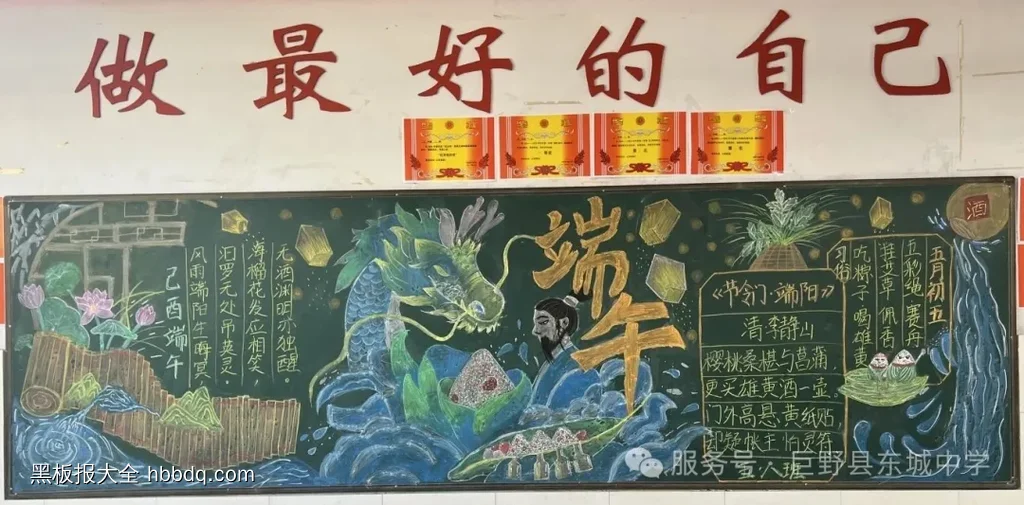 做最好的自己
端午
酒
己酉端午
风雨端阳生晦冥
汨罗无处吊英灵。
海榴花发应相笑，
无酒渊明亦独醒。
《节令门·端阳》
清 李静山
樱桃桑椹与菖蒲
更买雄黄酒一壶。
门外高悬黄纸贴
却疑帐主怕灵符
五.八班
五月初五
五彩绳 赛龙舟
挂艾草 佩香
吃粽子 喝雄黄
习俗
黑板报大全 hbbdq.com
服务号 · 巨野县东城中学